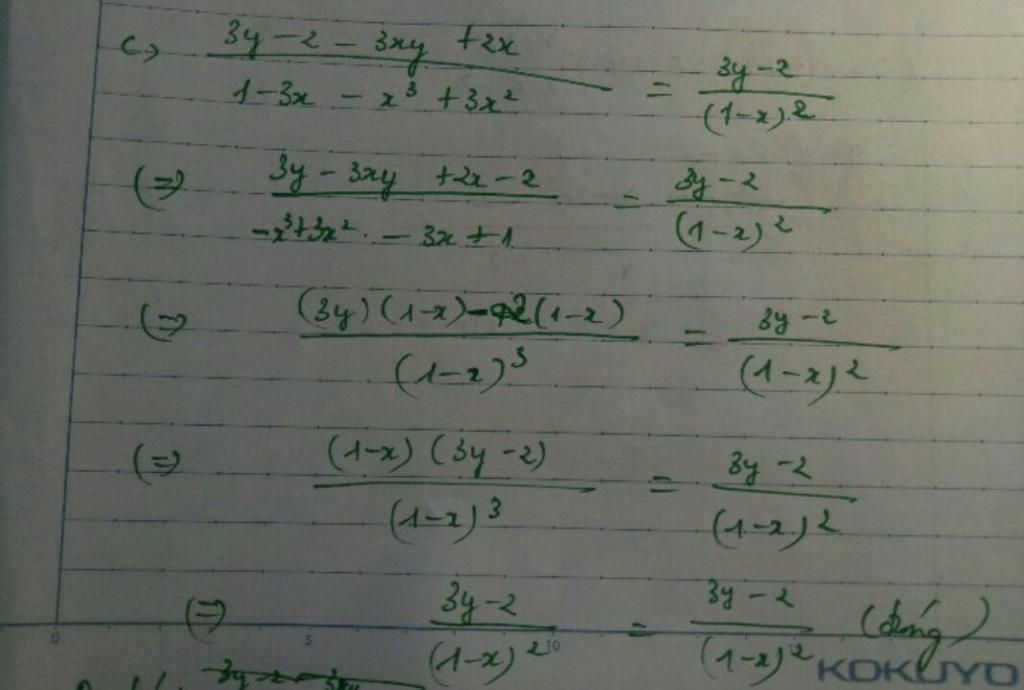 c, 3y - 2 - 3xy + 2x / 1 - 3x - x³ + 3x² = 3y - 2 / (1-x)²
(=) 3y - 3xy + 2x - 2 / -x³+3x² - 3x + 1 = 3y - 2 / (1-x)²
(=) (3y)(1-x) - 2(1-x) / (1-x)³ = 3y - 2 / (1-x)²
(=) (1-x)(3y-2) / (1-x)³ = 3y - 2 / (1-x)²
(=) 3y - 2 / (1-x)² = 3y - 2 / (1-x)² (đúng)
0 5 10
KOKUYO